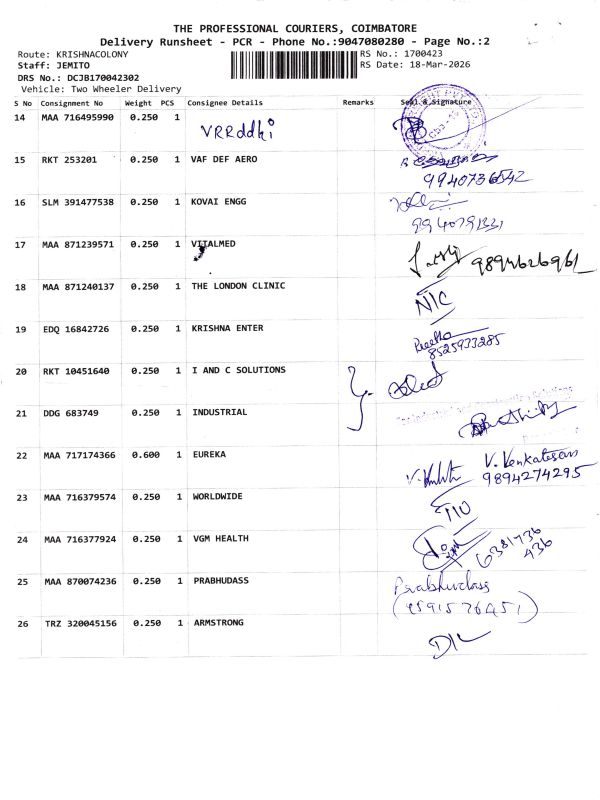 THE PROFESSIONAL COURIERS, COIMBATORE
Delivery Runsheet - PCR - Phone No.:9047080280 - Page No.:2
Route: KRISHNACOLONY
RS No.: 1700423
Staff: JEMITO
RS Date: 18-Mar-2026
DRS No.: DCJB170042302
Vehicle: Two Wheeler Delivery
S No Consignment No Weight PCS Consignee Details Remarks Seal & Signature
14 MAA 716495990 0.250 1
VRRddhi
15 RKT 253201 0.250 1 VAF DEF AERO
9940736542
16 SLM 391477538 0.250 1 KOVAI ENGG
17 MAA 871239571 0.250 1 VITALMED
18 MAA 871240137 0.250 1 THE LONDON CLINIC
N/C
19 EDQ 16842726 0.250 1 KRISHNA ENTER
8525933285
20 RKT 10451640 0.250 1 I AND C SOLUTIONS
21 DDG 683749 0.250 1 INDUSTRIAL
22 MAA 717174366 0.600 1 EUREKA
V. Venkatesan
9894274295
23 MAA 716379574 0.250 1 WORLDWIDE
24 MAA 716377924 0.250 1 VGM HEALTH
6381736
436
25 MAA 870074236 0.250 1 PRABHUDASS
Prabhudass
26 TRZ 320045156 0.250 1 ARMSTRONG
D/L